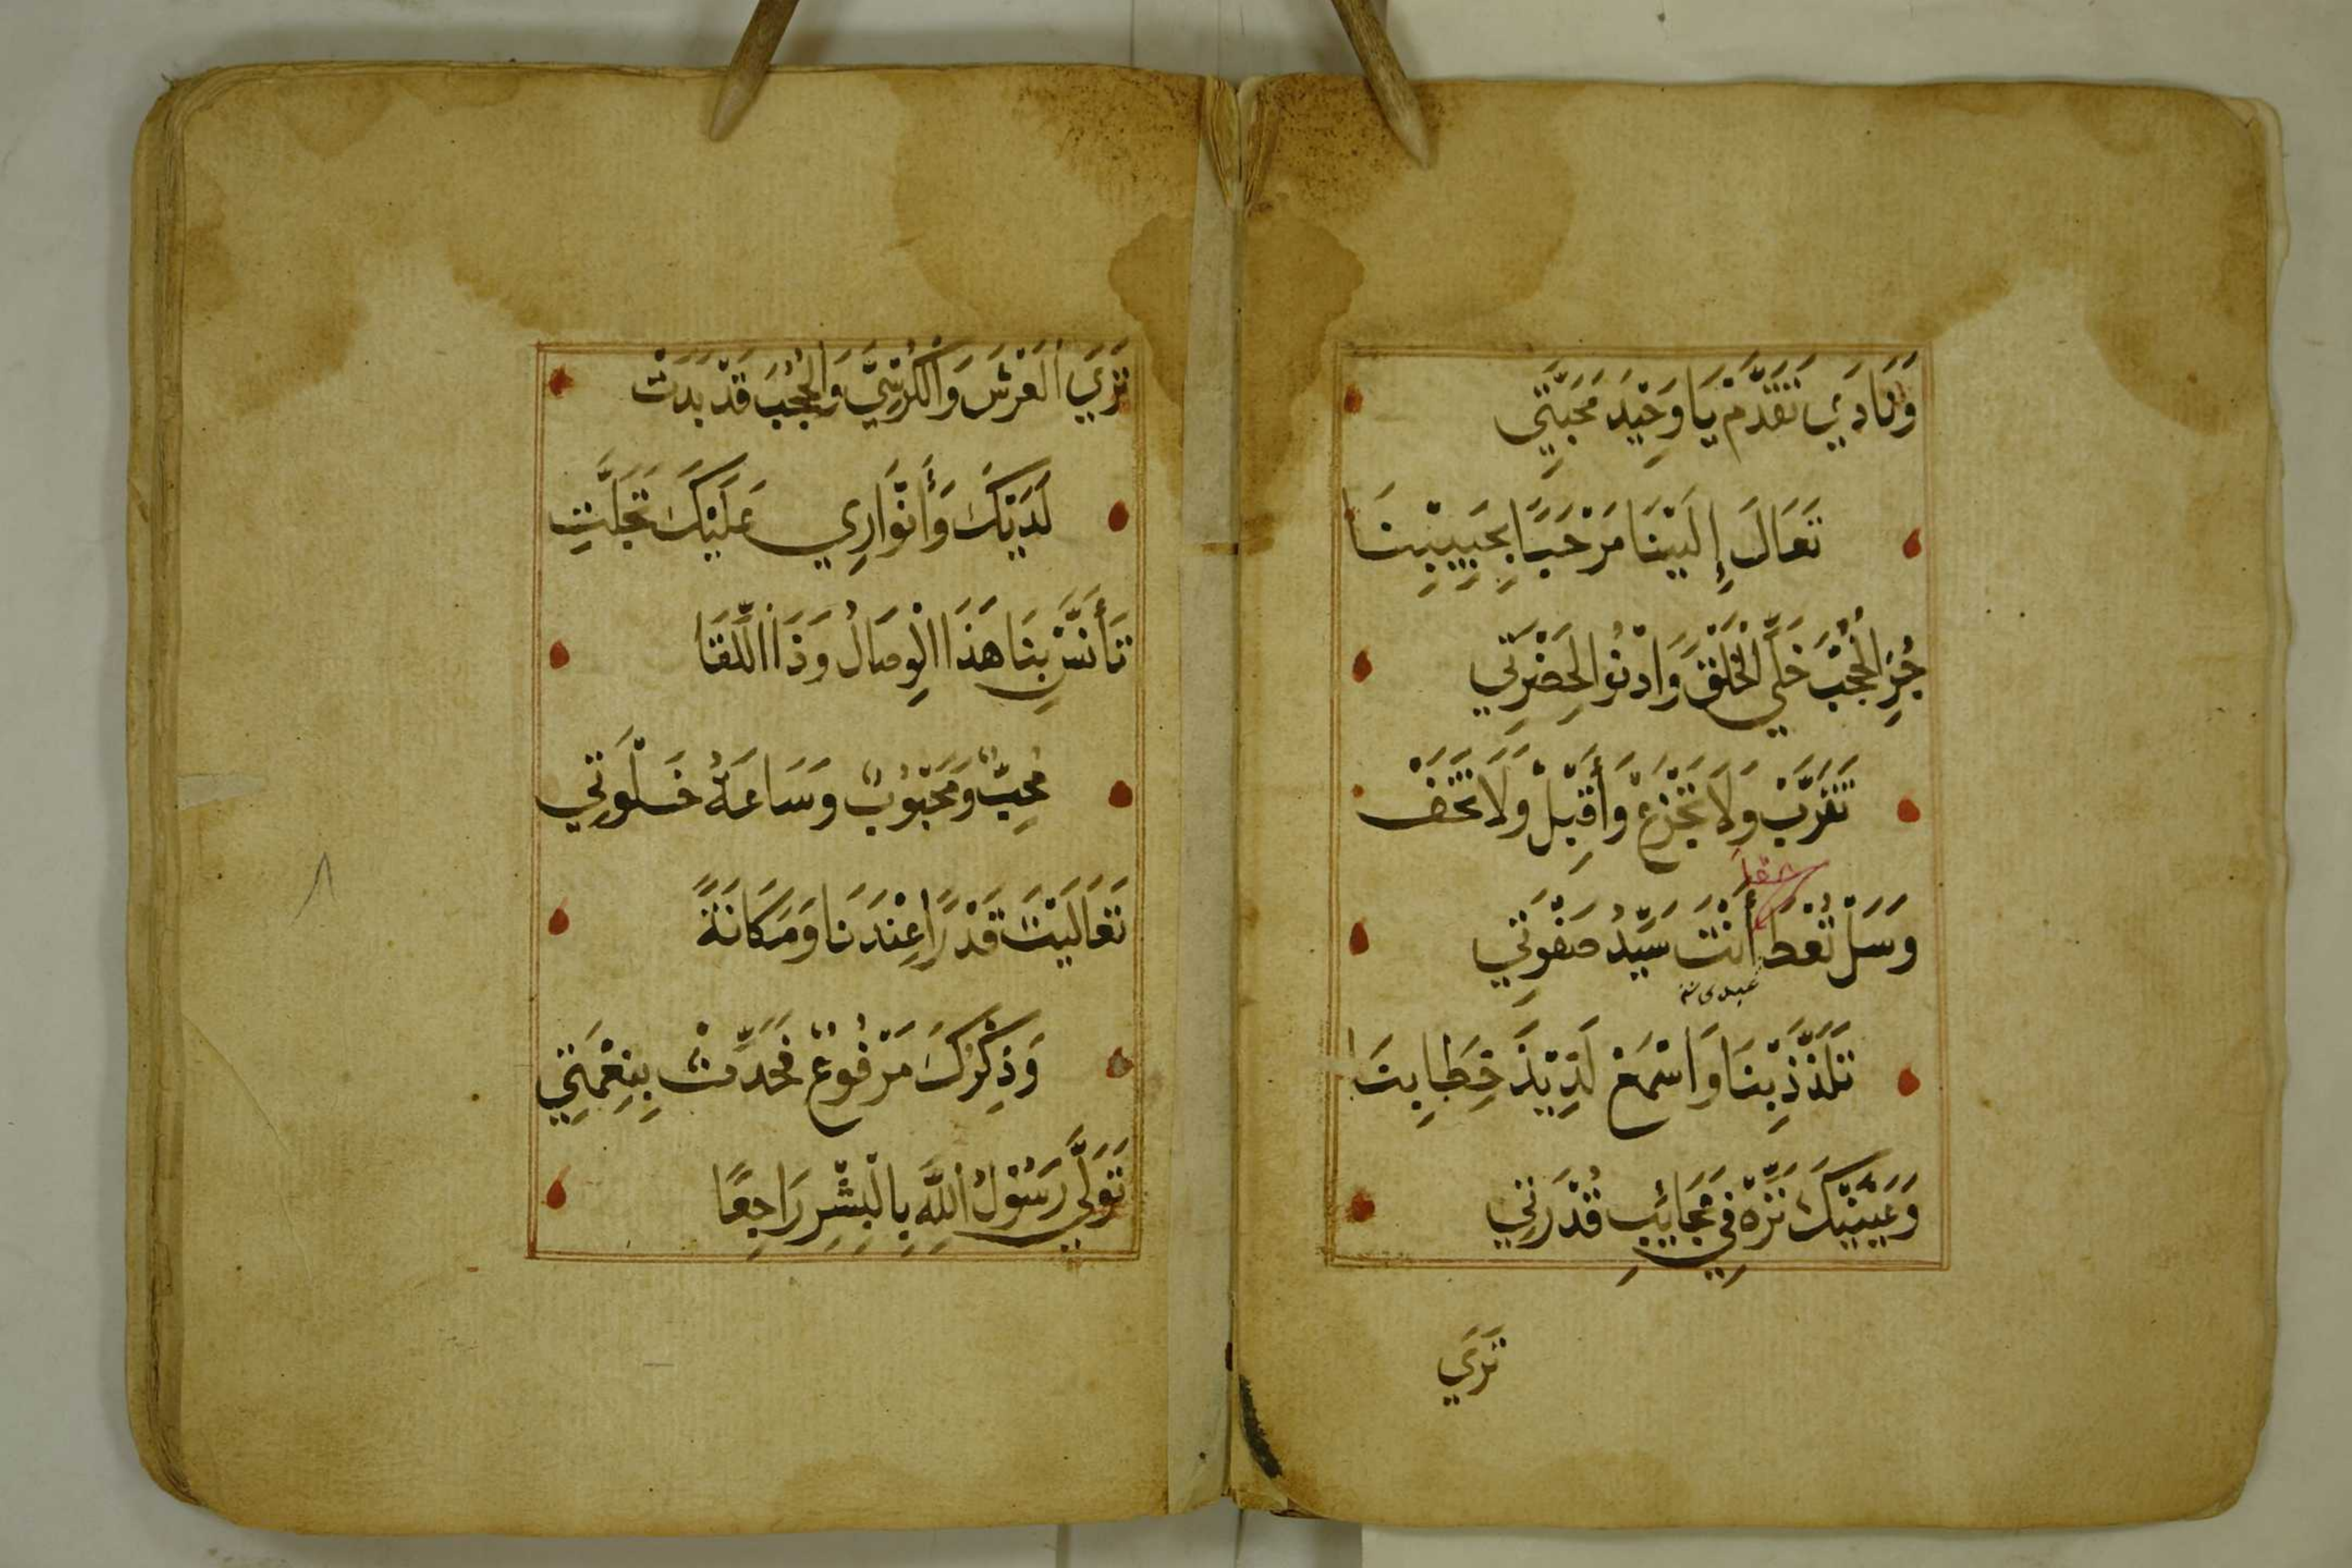 وَنَادَي تَقَدَّمْ يَا وَحِيْدَ مَحَبَّتِي
تَعَالَ إِلَيْنَا مَرْحَبًا بِحَبِيبِنَا
جُزِ الْحُجْبَ خَلِّي الْخَلْقَ وَادْنُو الِحَضْرَتِي
تَقَرَّبْ وَلَا تَجْزَعْ وَأَقْبِلْ وَلَا تَخَفْ
وَسَلْ تُعْطَ أَنْتَ سَيِّدُ صَفْوَتِي
عبدي
تَلَذَّذْ بِنَا وَاسْمَعْ لَذِيْذَ خِطَابِنَا
وَعَيْنَيْكَ نَزِّهْ فِي عَجَائِبِ قُدْرَتِي
تَرَي
تَرَي الْعَرْشَ وَالْكُرْسِيَّ وَالْحُجْبَ قَدْ بَدَتْ
لَدَيْكَ وَأَنْوَارِي عَلَيْكَ تَجَلَّتِ
تَأَنَّسْ بِنَا هَذَا الْوِصَالُ وَذَا اللِّقَا
مُحِبٌّ وَمَحْبُوبٌ وَسَاعَةُ خَلْوَتِي
تَعَالَيْتَ قَدْرًا عِنْدَنَا وَمَكَانَةً
وَذِكْرُكَ مَرْفُوعٌ فَحَدِّثْ بِنِعْمَتِي
تَوَلَّي رَسُوْلُ اللَّهِ بِالْبِشْرِ رَاجِعًا